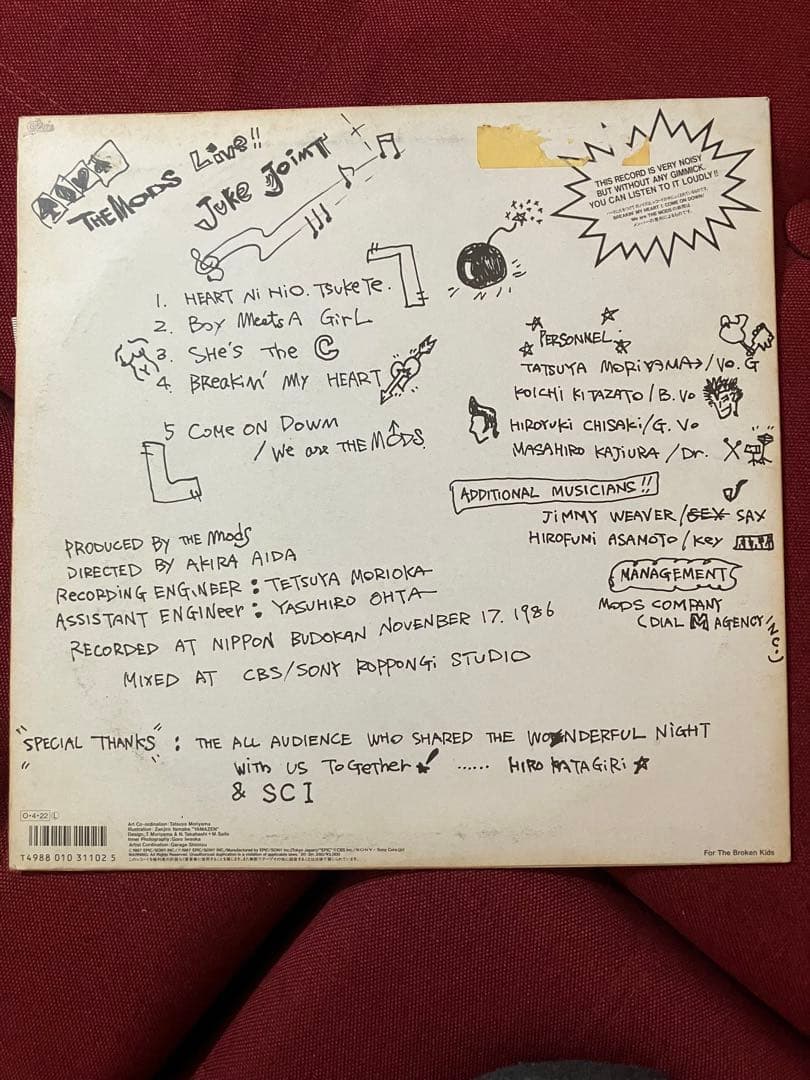 THE MODS LIVE!!
JUKE JOINT
THIS RECORD IS VERY NOISY
BUT WITHOUT ANY GIMMICK.
YOU CAN LISTEN TO IT LOUDLY!!
BREAKIN' MY HEART と COME ON DOWN/
We are THE MODS
1. HEART Ni HiO. TSUKETE.
2. BOY MEETS A GiRL
3. SHE'S THE C
4. BREAKIN' MY HEART
5 COME ON DOWN
/ We are THE MODS.
PERSONNEL:
TATSUYA MORiYAMA/VO.G
KOICHI KITAZATO/B.VO
HIROYUKI CHISAKI/G.VO
MASAHIRO KAJIURA/Dr.
ADDITIONAL MUSICIANS!!
JIMMY WEAVER/SEX SAX
HIROFUMI ASAMOTO/KEY
MANAGEMENT
MODS COMPANY
(DIAL M AGENCY INC.)
PRODUCED BY THE MODS
DIRECTED BY AKIRA AIDA
RECORDING ENGINEER: TETSUYA MORIOKA
ASSISTANT ENGINEER: YASUHIRO OHTA
RECORDED AT NIPPON BUDOKAN NOVENBER 17. 1986
MIXED AT CBS/SONY ROPPONGI STUDIO
"SPECIAL THANKS": THE ALL AUDIENCE WHO SHARED THE WONDERFUL NIGHT
WITH US TOGETHER! ...... HIRO KATAGIRI ☆
& SCI
O·4·22 L
T4988 010 31102 5
Art Co-ordination: Tatsuya Moriyama
Illustration: Zenjiro Yamabe "YAMAZEN"
Inner Photography: Goro Iwaoka
For The Broken Kids